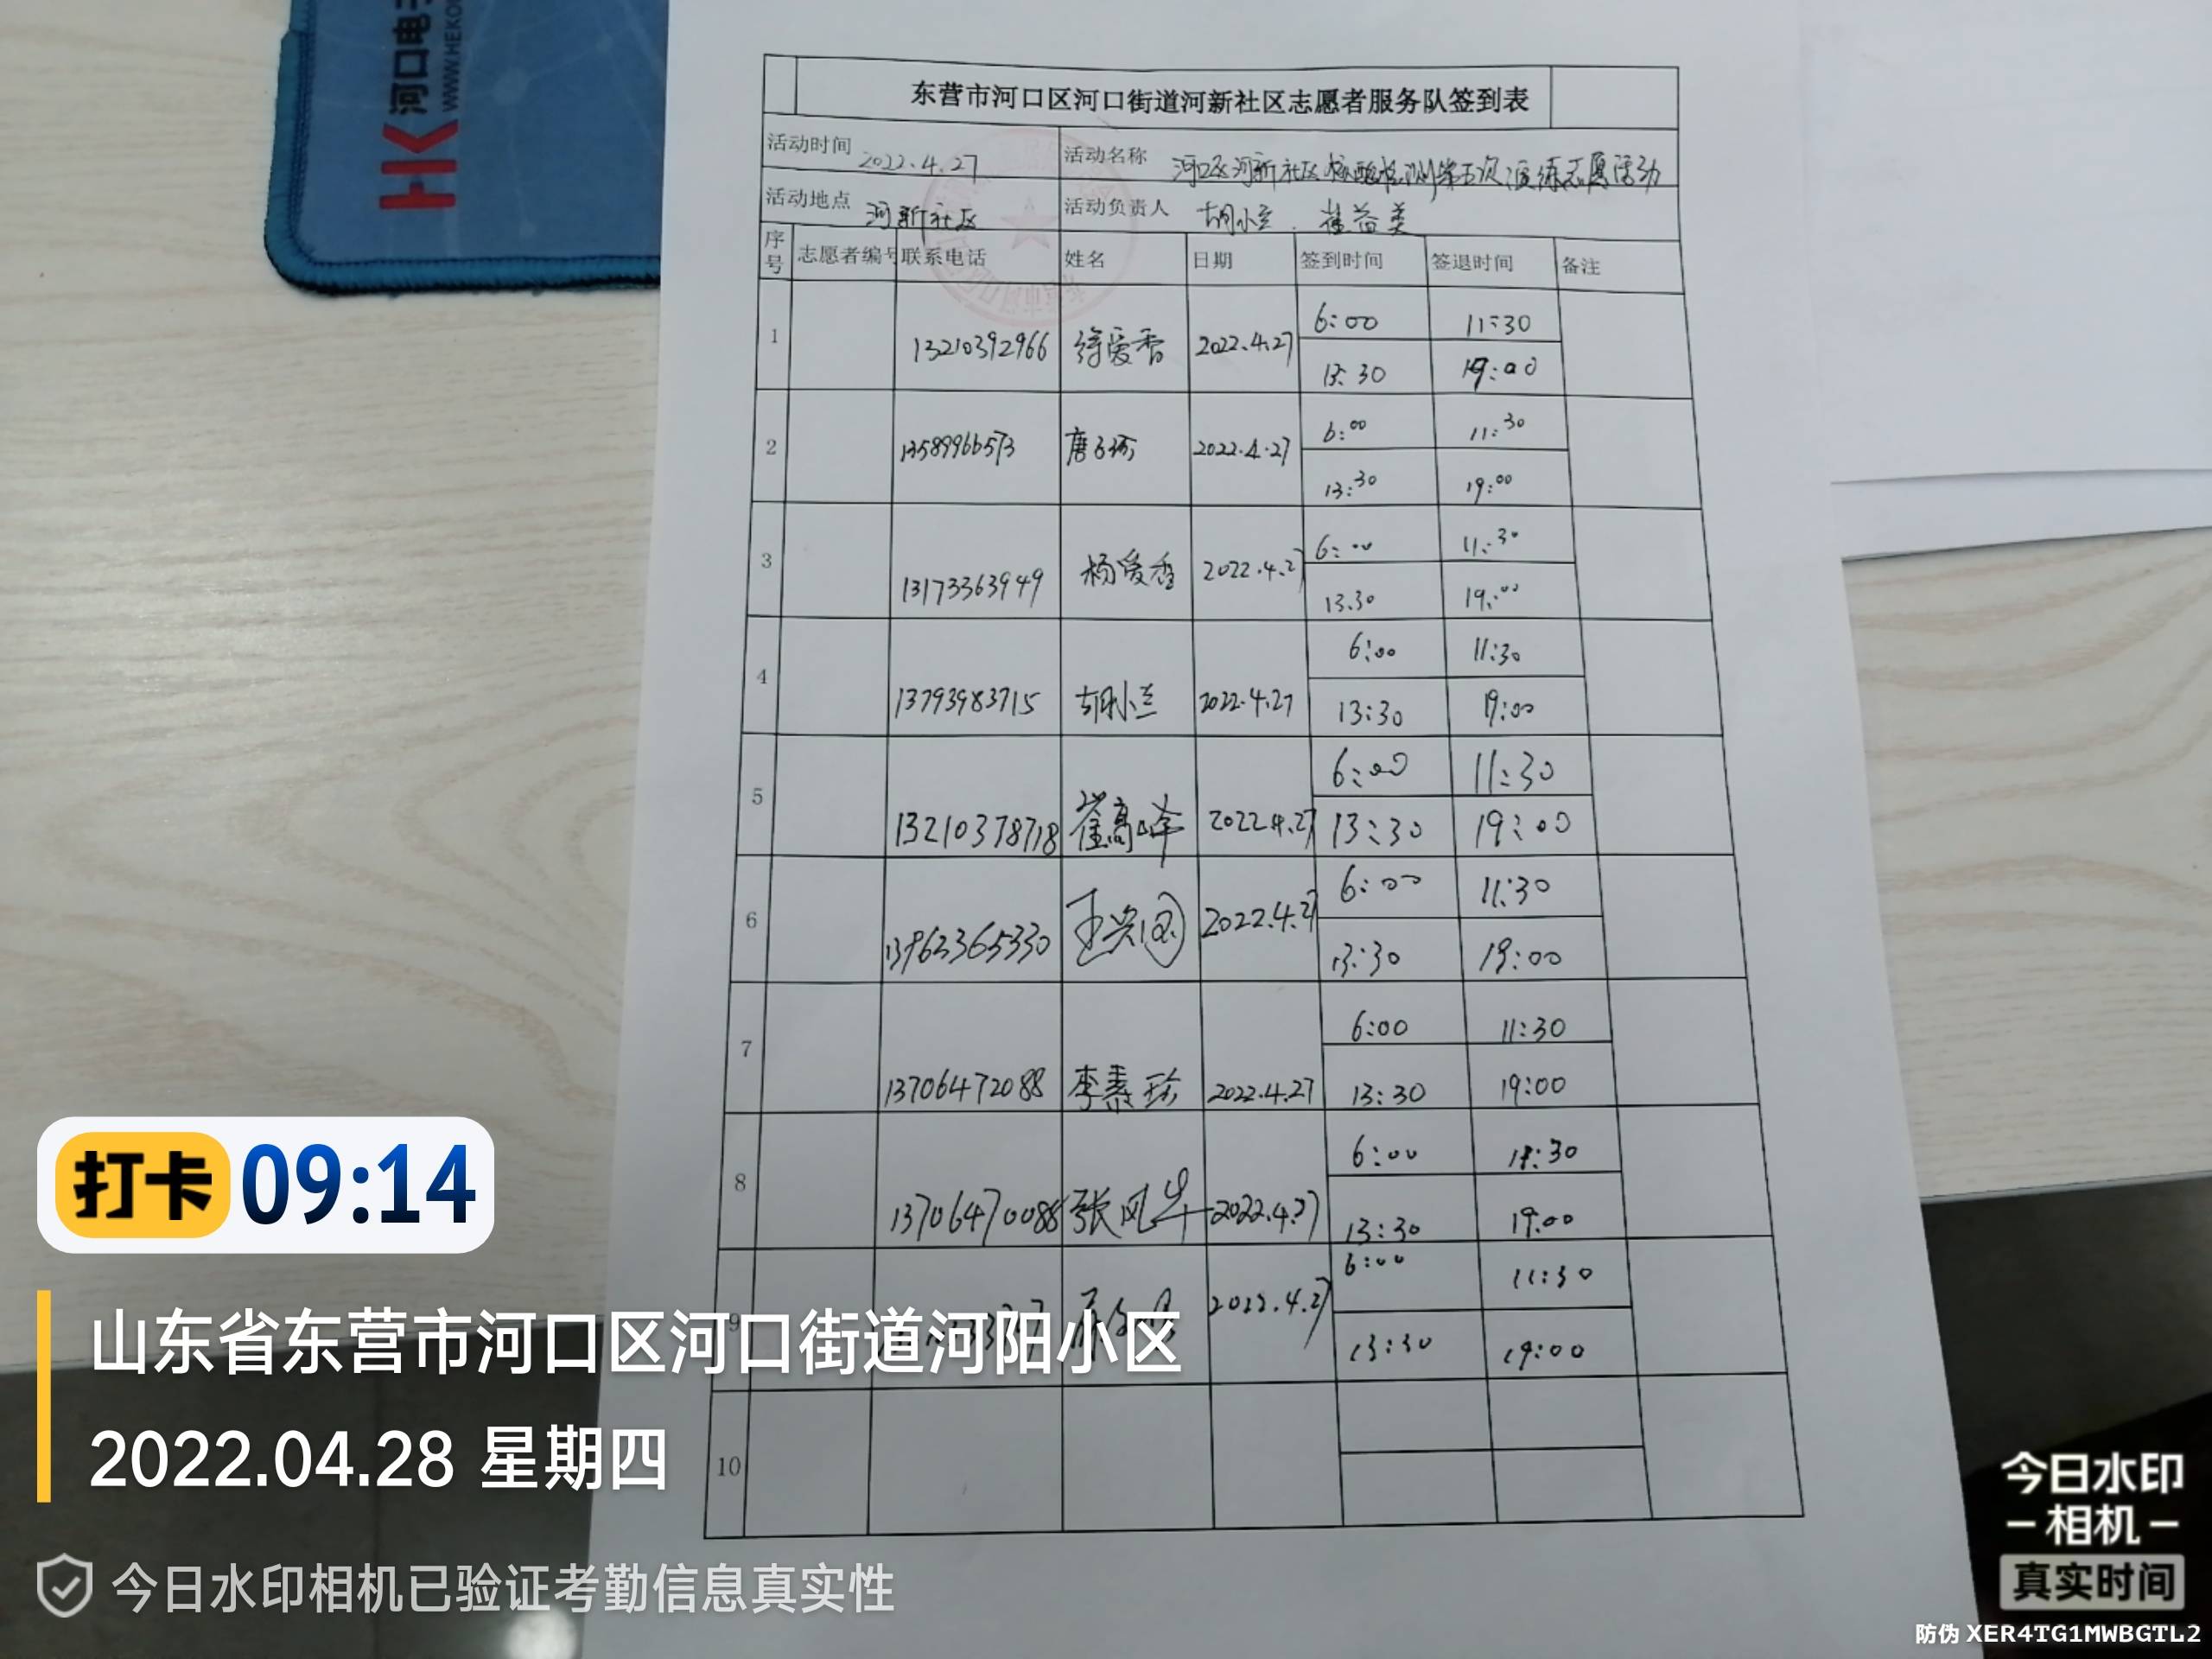 河口电子
WWW.HEKO
HK
东营市河口区河口街道河新社区志愿者服务队签到表
活动时间 2022.4.27 活动名称 河口区河新社区核酸检测第五次演练志愿活动
活动地点 河新社区 活动负责人 胡小兰、崔益美
序号 志愿者编号 联系电话 姓名 日期 签到时间 签退时间 备注
1 13210392966 徐爱香 2022.4.27 6:00 11:30
13:30 19:00
2 13589966573 唐 2022.4.27 6:00 11:30
13:30 19:00
3 13173363949 杨爱香 2022.4.27 6:00 11:30
13.30 19:00
4 13793983715 胡小兰 2022.4.27 6:00 11:30
13:30 19:00
5 13210378718 崔高峰 2022.4.27 6:00 11:30
13:30 19:00
6 13963365330 王兴国 2022.4.27 6:00 11:30
13:30 19:00
7 13706472088 李秀珍 2022.4.27 6:00 11:30
13:30 19:00
8 13706470088 张风华 2022.4.27 6:00 11:30
13:30 19:00
9 2022.4.27 6:00 11:30
13:30 19:00
10
打卡 09:14
山东省东营市河口区河口街道河阳小区
2022.04.28 星期四
今日水印相机已验证考勤信息真实性
今日水印
相机
真实时间
防伪 XER4TG1MWBGTL2